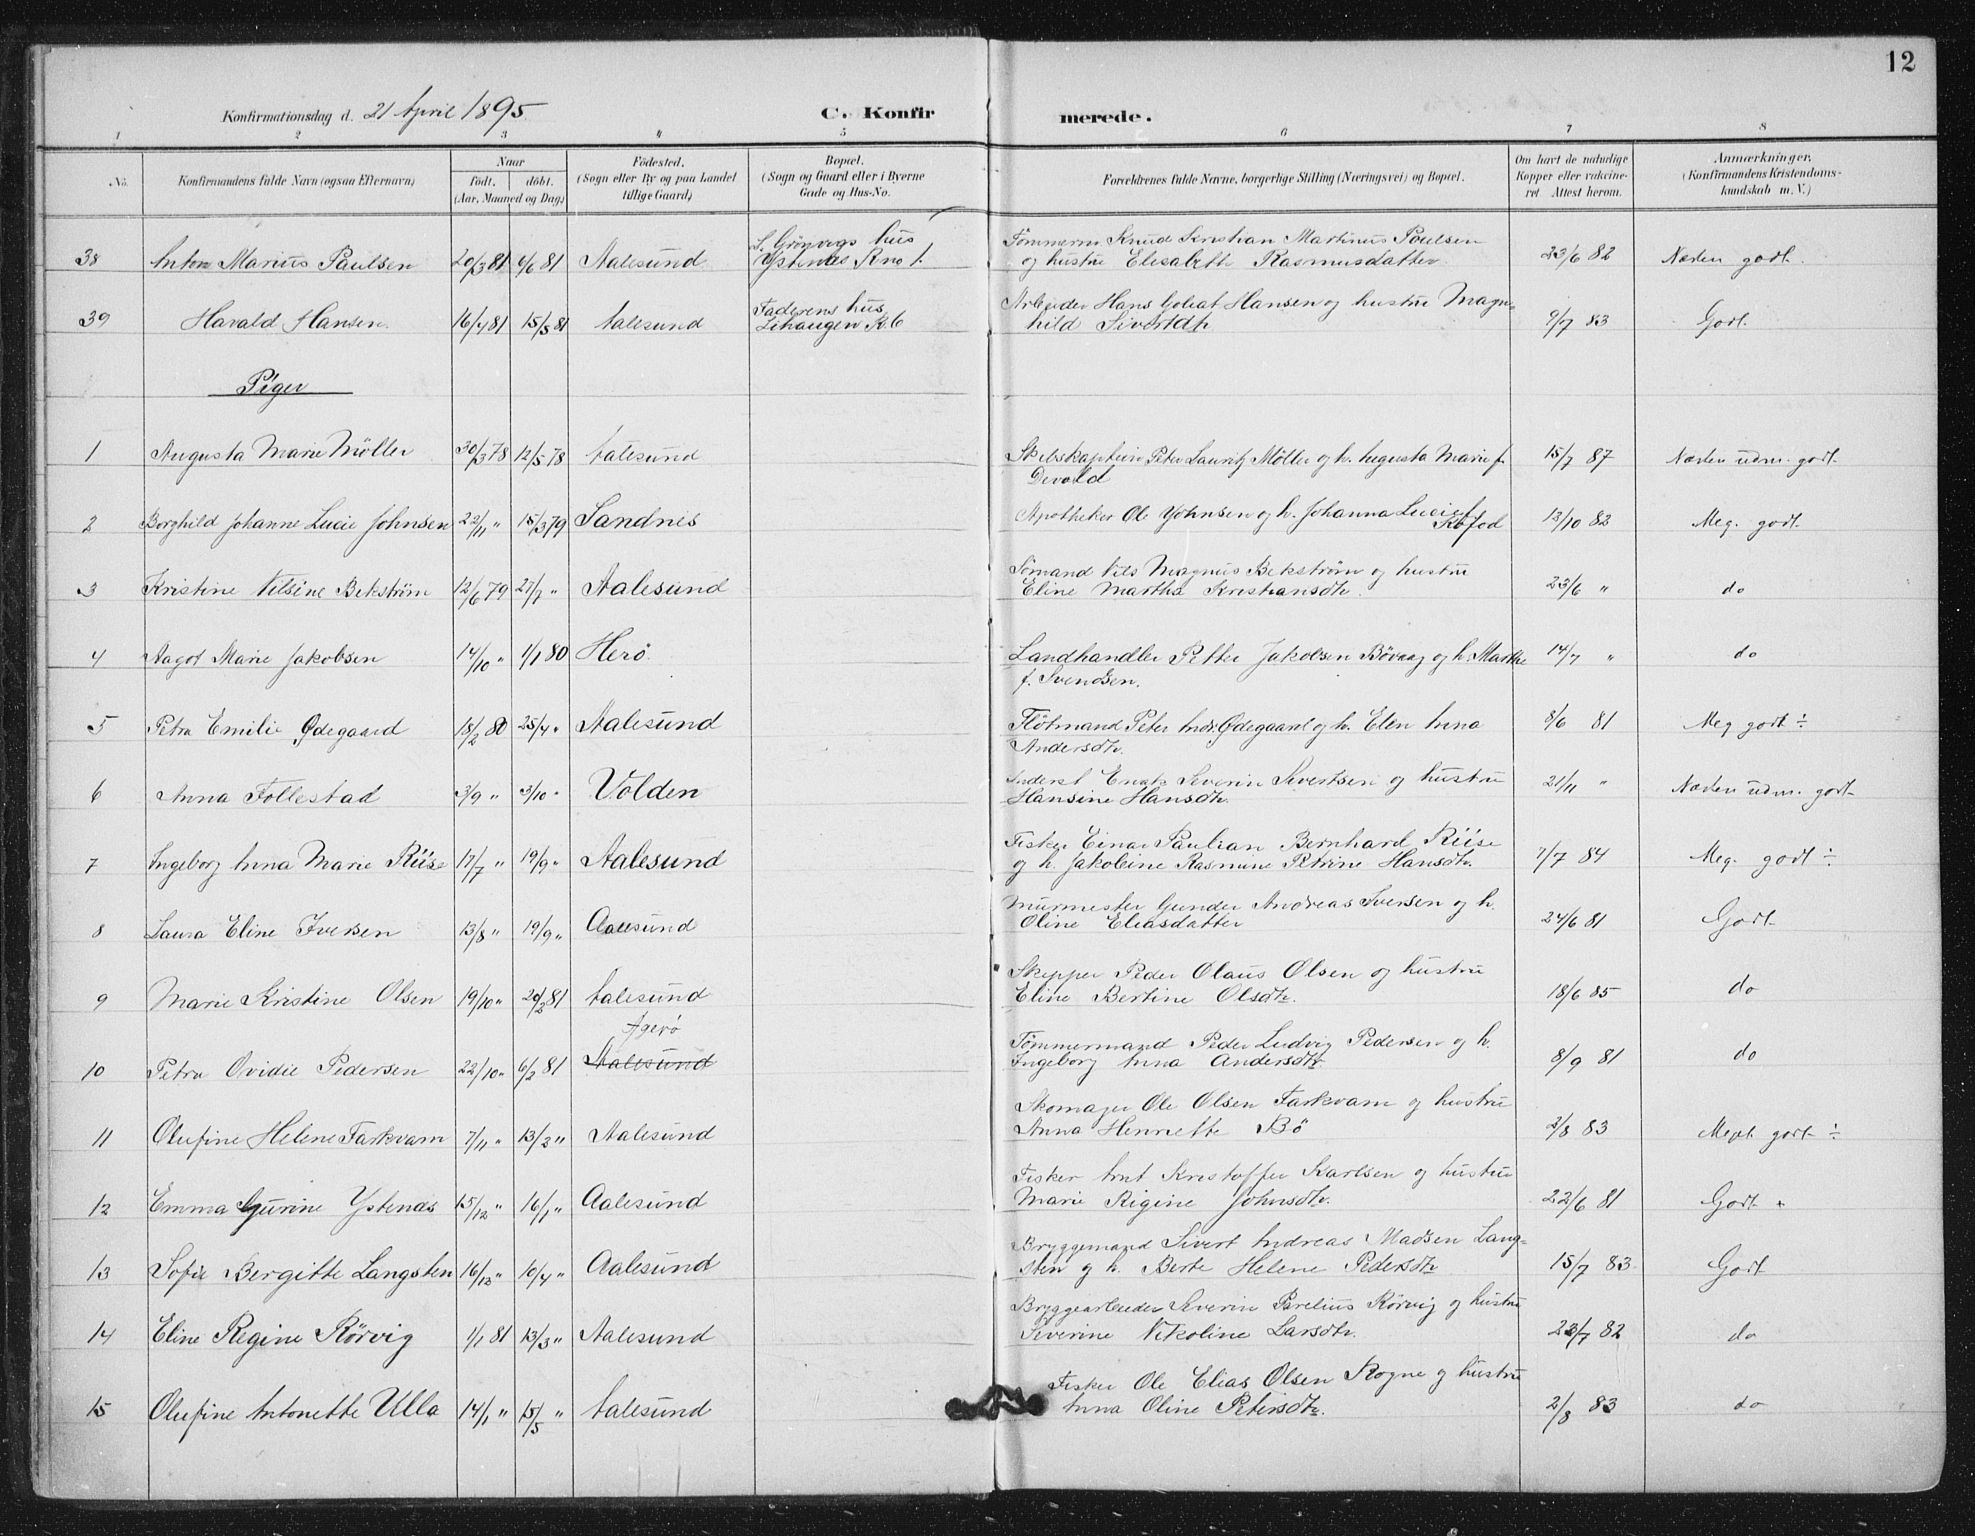 12
Konfirmationsdag d. 21 April 1895.
C. Konfirmerede.
1 2 3 " 5 6 7 8
No. Konfirmandens fulde Navn (ogsaa Efternavn) Naar født. døbt. (Aar, Maaned og Dag) Födested. (Sogn eller By og paa Landet tillige Gaard) Bopæl. (Sogn og Gaard eller i Byerne Gade og Hus-No. Forældrenes fulde Navne, borgerlige Stilling (Næringsvei) og Bopæl. Om havt de naturlige Kopper eller vakcineret Attest herom. Anmærkninger. (Konfirmandens Kristendomskundskab m. V.)
38 Anton Marius Paulsen 20/3 81 6/6 81 Aalesund hus Ystenæs R no 1. Tømmerm. Knud Kristian Martinus Poulsen
og hustru Elisabeth Rasmusdatter. 23/6 82 Næsten godt.
39 Harald Hansen 16/4 81 15/5 81 Aalesund Faderens hus Lihaugen R. 6 Arbeider Hans Goliat Hansen og hustru Magn-
hild Sivertdtr 9/7 83 Godt.
Piger
1 Augusta Marie Möller 30/3 78 12/5 78 Aalesund Skibskaptein Peter Lauritz Møller og h. Augusta Marie f.
Devold 15/7 87 Næsten udm. godt.
2 Borghild Johanne Lucie Johnsen 22/11 " 15/3 79 Sandnes Apotheker Ole Johnsen og h. Johanna Lucie f.
Kofod 13/10 82 Meg. godt.
3 Kristine Nilsine Bekström 12/6 79 27/7 " Aalesund Sømand Nils Magnus Bekstrøm og hustru
Eline Martha Kristiansdtr. 23/6 " do
4 Aagot Marie Jakobsen 14/10 " 1/1 80 Herö Landhandler Petter Jakobsen Bövaag og h. Marthe
f. Svendsen. 14/7 " do
5 Petra Emilie Ødegaard 18/2 80 25/4 " Aalesund Flötmand Peter Ands. Ødegaard og h. Elen Anna
Andersdtr. 8/6 81 Meg godt ÷
6 Anna Follestad 3/9 " 3/10 " Volden Severin Sivertsen og hustru
Hansine Hansdtr. 21/11 " Næsten udm. godt
7 Ingeborg Anna Marie Riise 17/7 " 19/9 " Aalesund Fisker Einar Paulian Bernhard Riise
og h. Jakobine Rasmine Petrine Hansdtr. 7/7 84 Meg. godt ÷
8 Laura Eline Iversen 13/8 " 19/9 " Aalesund Murmester Gunder Andreas Iversen og h.
Oline Eliasdatter 24/6 81 Godt
9 Marie Kristine Olsen 19/10 " 20/2 81 Aalesund Skipper Peder Olaus Olsen og hustru
Eline Bertine Olsdtr. 18/6 85 do
10 Petra Ovidie Pedersen 22/10 " 6/2 81 Agerö Aalesund Tömmermand Peder Ludvig Pedersen og h.
Ingeborg Anna Andersdtr 8/9 81 do
11 Olufine Helene Farkvam 7/11 " 13/2 " Aalesund Skomager Ole Olsen Farkvam og hustru
Anna Henriette Bö 2/8 83 Meget godt ÷
12 Emma Gurine Ystenæs 15/12 " 16/1 " Aalesund Fisker Knut Kristoffer Karlsen og hustru
Marie Rigine Johnsdtr. 22/6 81 Godt +
13 Sofie Bergitte Langsten 16/12 " 10/4 " Aalesund Bryggemand Sivert Andreas Madsen Lang-
sten og h. Berte Helene Pedersdtr 15/7 83 Godt
14 Eline Regine Rörvig 1/1 81 13/3 " Aalesund Bryggearbeider Severin Parelius Rörvig og hustru
Siverine Nikoline Larsdtr. 23/7 82 do
15 Olufine Antonette Ulla 14/1 " 15/5 " Aalesund Fisker Ole Elias Olsen Rogne og hustru
Anna Oline Petersdtr. 2/8 83 do